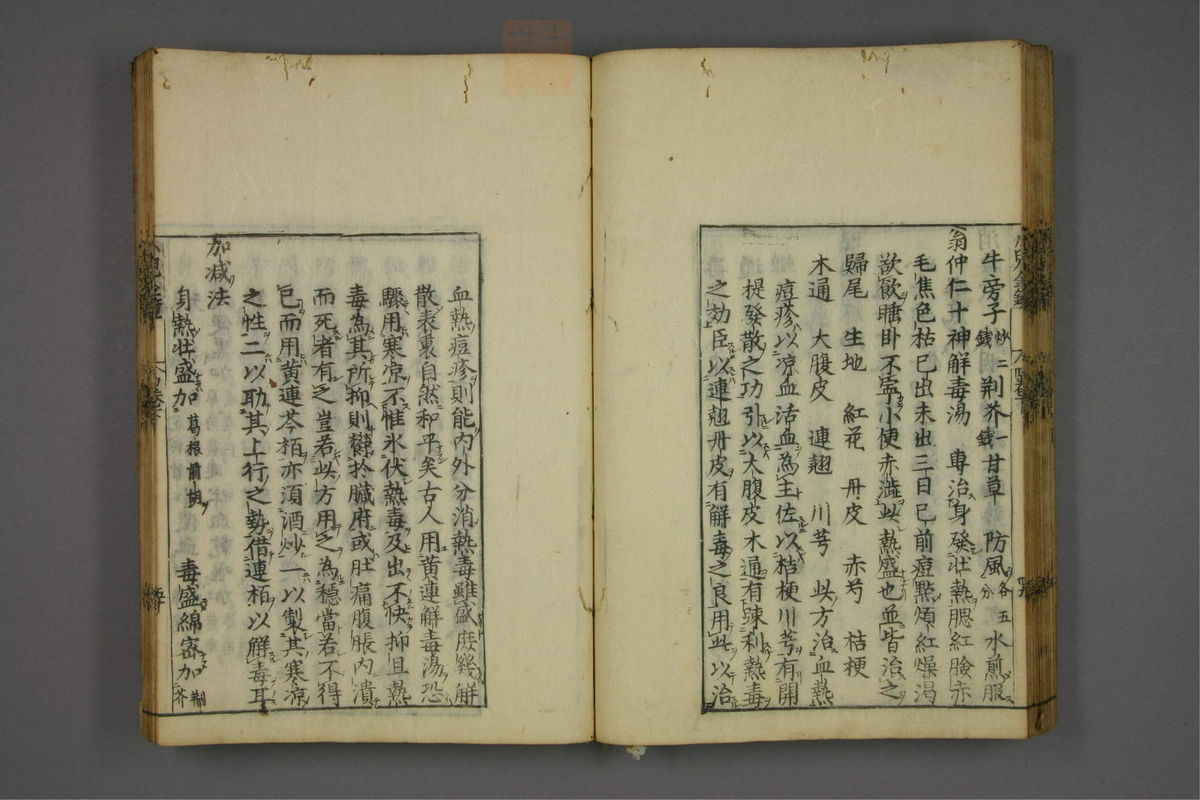 牛旁子炒二錢荆芥一錢甘草防風各五分水煎服
翁仲仁十神解毒湯 專治身發壯熱腮紅臉赤
毛焦色枯已出未出三日已前痘點煩紅燥渴
欲飲睡卧不寧小便赤澁此熱盛也並皆治之
歸尾 生地 紅花 丹皮 赤芍 桔梗
木通 大腹皮 連翹 川芎 此方治血熱
痘疹以凉血活血為主佐以桔梗川芎有開
提發散之功引以大腹皮木通有疎利熱毒
之効臣以連翹丹皮有解毒之良用此以治
血熱痘疹則能内外分消熱毒雖盛庶鷄解
散表裏自然和平矣古人用黄連解毒湯恐
驟用寒凉不惟氷伏熱毒及出不快抑且熱
毒為其所抑則欝於臓府或肚痛腹脹内潰
而死者有之豈若此方用之為穏當若不得
已而用黄連芩栢亦須酒炒一以製其寒凉
之性二以助其上行之勢借連栢以解毒耳
加減法
身熱壯盛加葛根前胡 毒盛綿密加荆芥